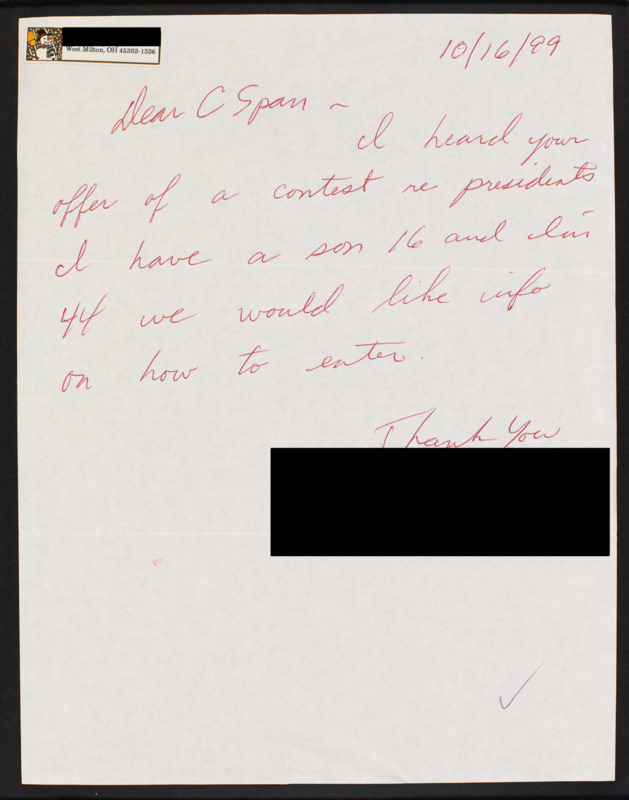 West Milton, OH 45383-1336
10/16/99
Dear C Span ~
I heard your
offer of a contest re presidents
I have a son 16 and I'm
44 we would like info
on how to enter.
Thank You